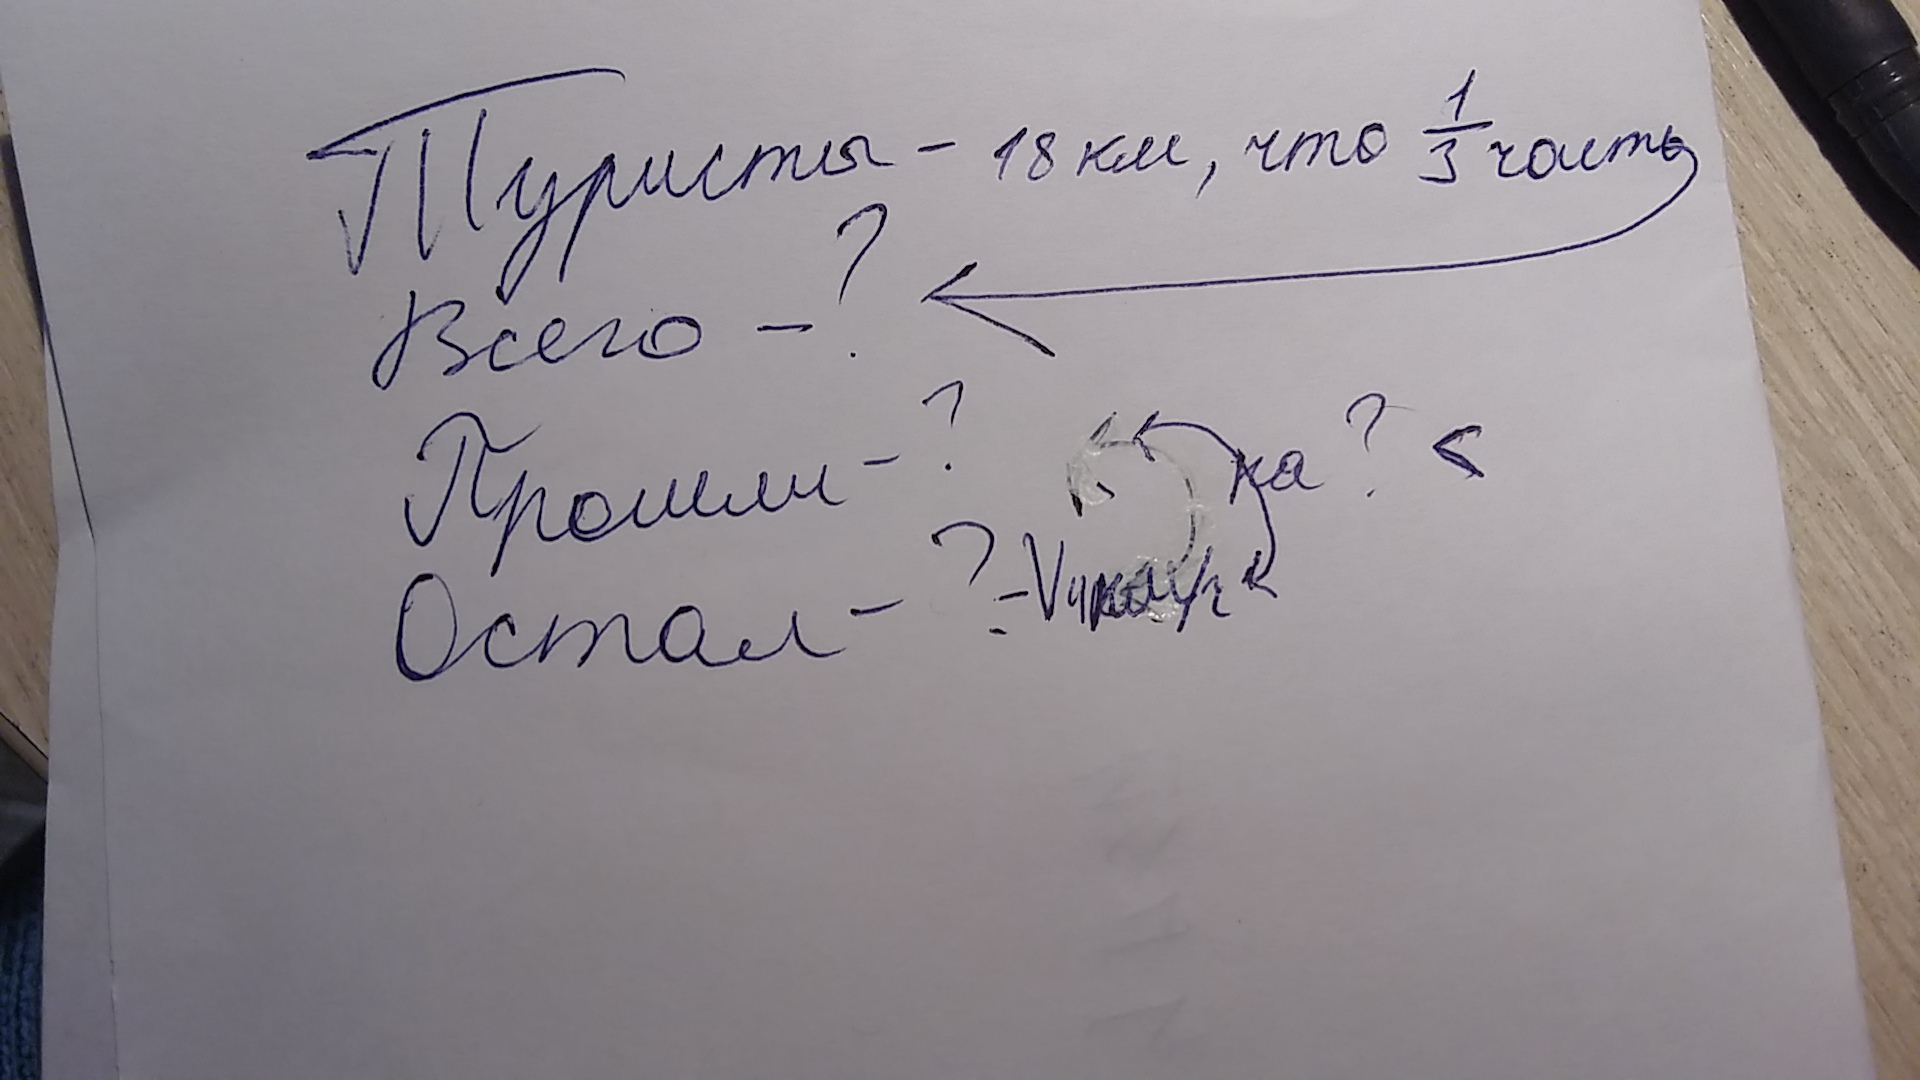 Туристы - 18 км, что 1/3 часть
Всего - ?
Прошли - ? на ? <
Остал - ?